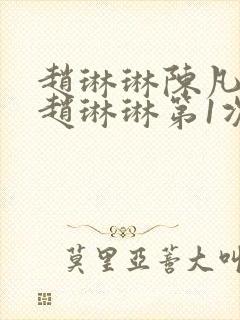 趙琳琳陳凡
趙琳琳第1次
莫里亞蒼大叫